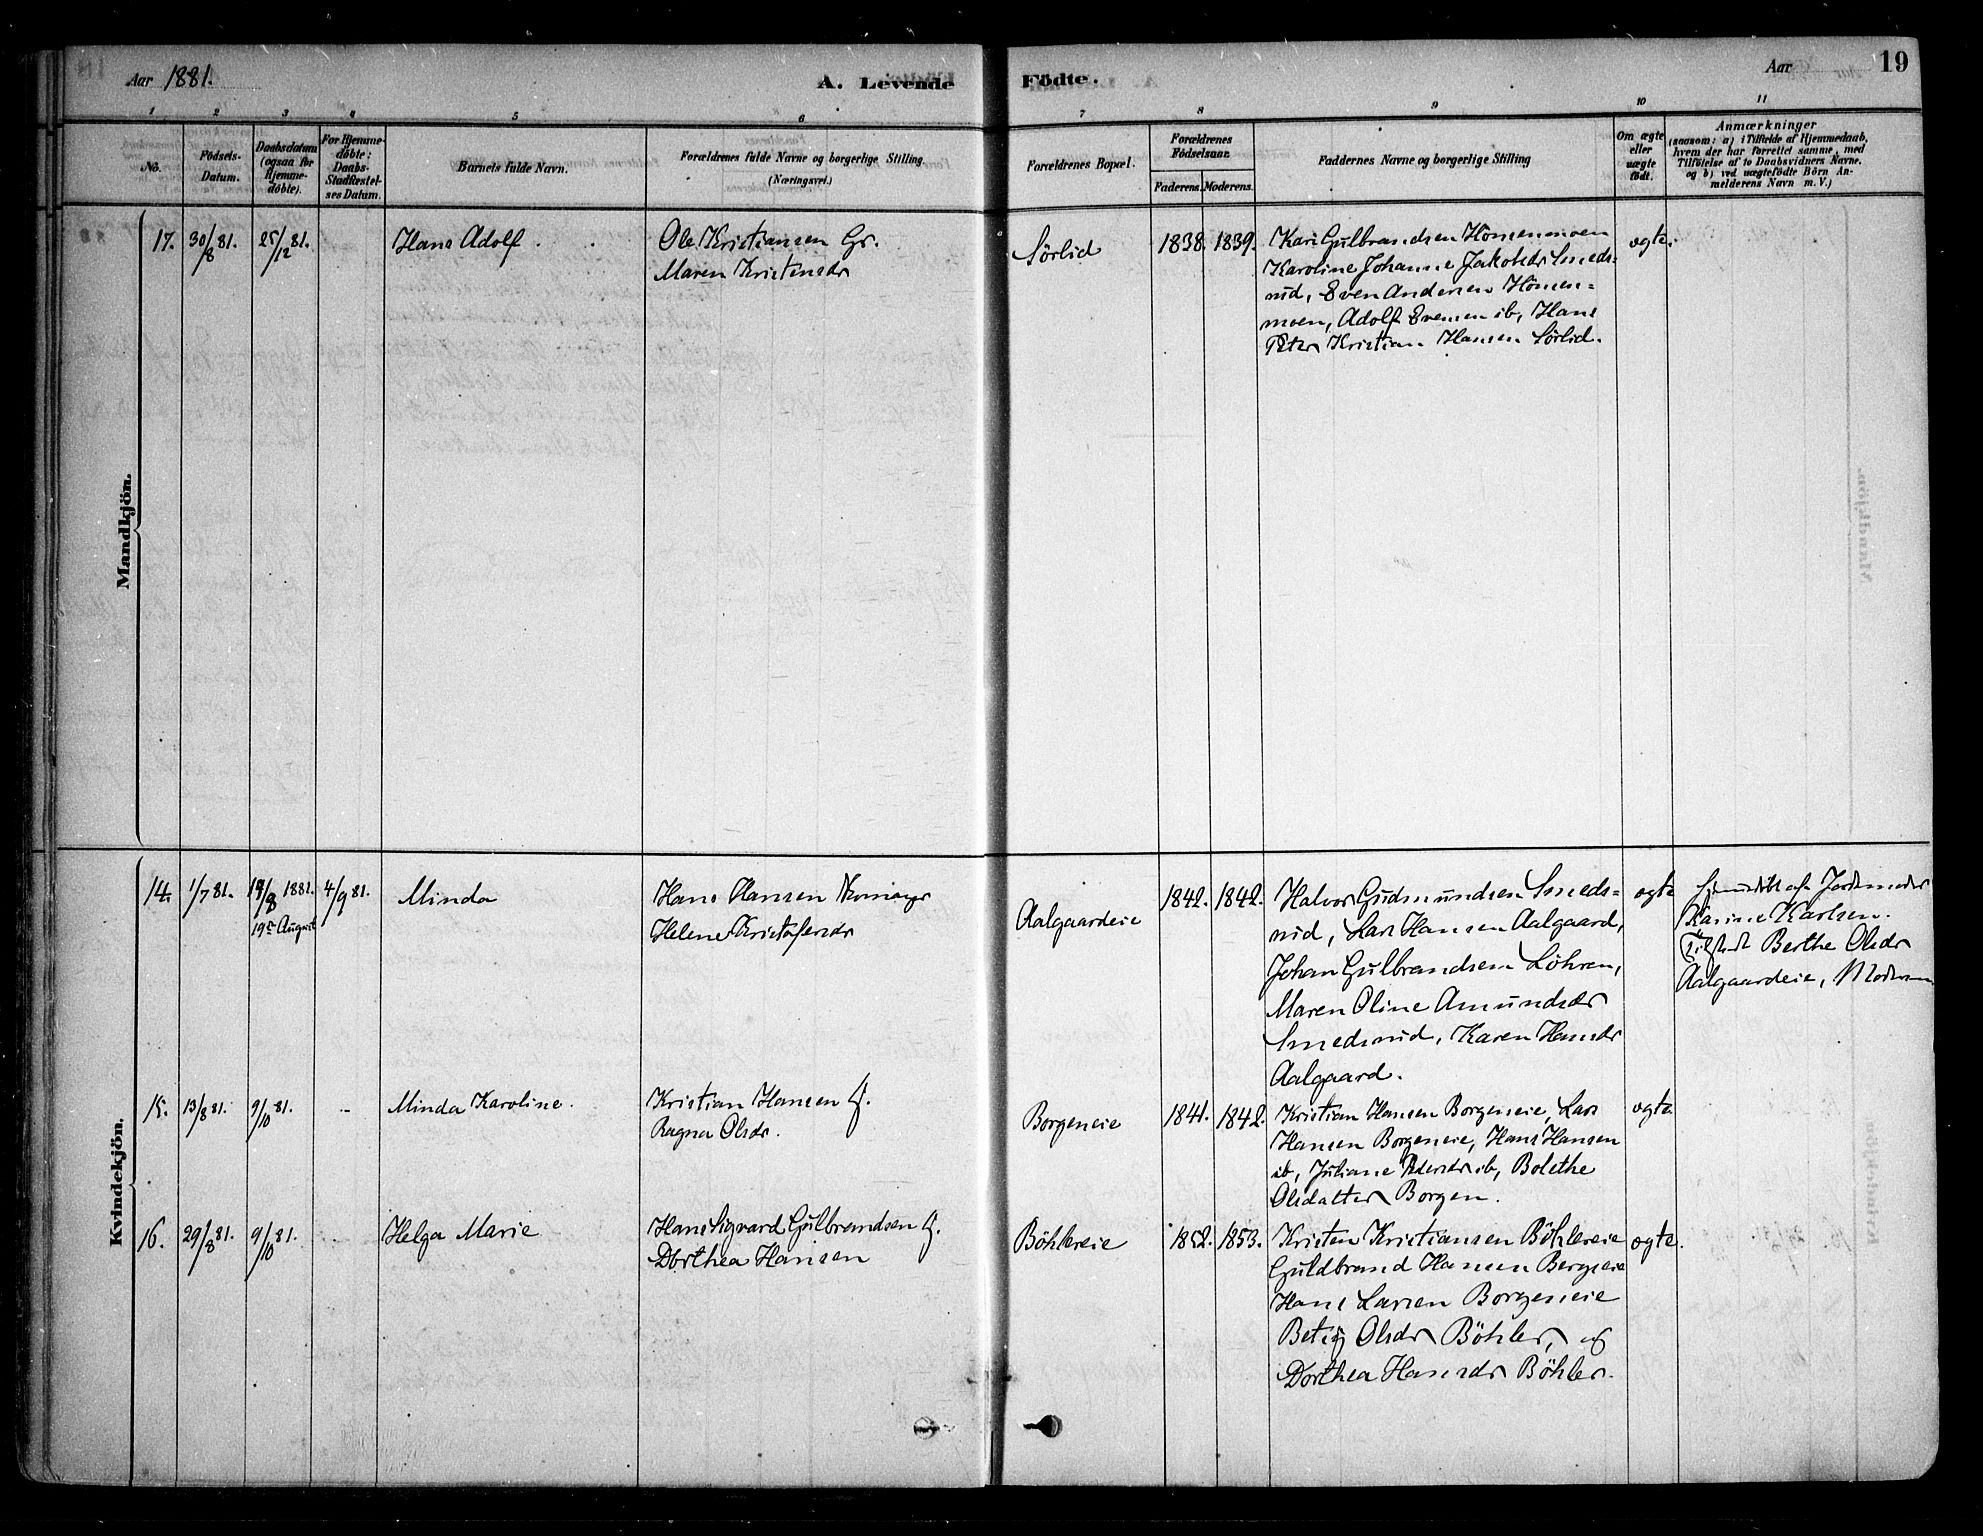 Aar 1881.
A. Levende Födte.
Aar
19
1 2 3 4 5 6 7 8 9 10 11
No.
Födsels-Datum.
Daabsdatum (ogsaa for Hjemme-döbte).
For Hjemme-döbte: Daabs-Stadfæstel-ses Datum.
Barnets fulde Navn.
Forældrenes fulde Navne og borgerlige Stilling
(Næringsvei.)
Forældrenes Bopæl.
Forældrenes Födselsaar.
Faderens. Moderens.
Faddernes Navne og borgerlige Stilling
Om ægte eller uægte födt.
Anmærkninger
(saasom: a) i Tilfælde af Hjemmedaab,
hvem der har forrettet samme, med
Tilföielse af to Daabsvidners Navne.
og b) ved uægtefödte Börn An-
melderens Navn m. V.)
Mandkjön.
17. 30/8 81. 25/12 81.
Hans Adolf
Ole Kristiansen Gr.
Maren Kristensdr
Sörlid
1838 1839.
Kari Gulbrandsen Hömenmoen
Karoline Johanne Jakobsdr Smeds=
rud, Even Andersen Hömen=
moen, Adolf Evensen ib, Hans
Peter Kristian Hansen Sörlid.
ægte.
Kvindekjön.
14. 1/7 81. 19/8 1881. 4/9 81.
19de August
Minda
Hans Hansen
Helene Kristofersdr
Aalgaardeie
1842. 1842.
Halvor Gudmundsen Smeds=
rud, Lars Hansen Aalgaard,
Johan Gulbrandsen Löhren,
Maren Oline Amundsdr
Smedsrud, Karen Hansdr
Aalgaard.
ægte
Hjemmedöbt af Jordemoder
Karine Karlsen.
Tilstede Berthe Olsdr
Aalgaardeie, Moderen
15. 13/8 81. 9/10 81. -
Minda Karoline.
Kristian Hansen G.
Ragna Olsdr.
Borgeneie
1841. 1842.
Kristian Hansen Borgeneie, Lars
Hansen Borgeneie, Hans Hansen
ib, Juliane Pedersdr ib, Bolethe
Olsdatter Borgen.
ægte
16. 29/8 81. 9/10 81.
Helga Marie
Hans Sigvard Gulbrandsen G.
Dorthea Hansen
Böhlereie
1852. 1853.
Kristen Kristiansen Böhlereie
Guldbrand Hansen Bergseie
Hans Larsen Borgeneie
Betzy Olsdr Böhler, og
Dorthea Hansdr Böhler.
ægte.